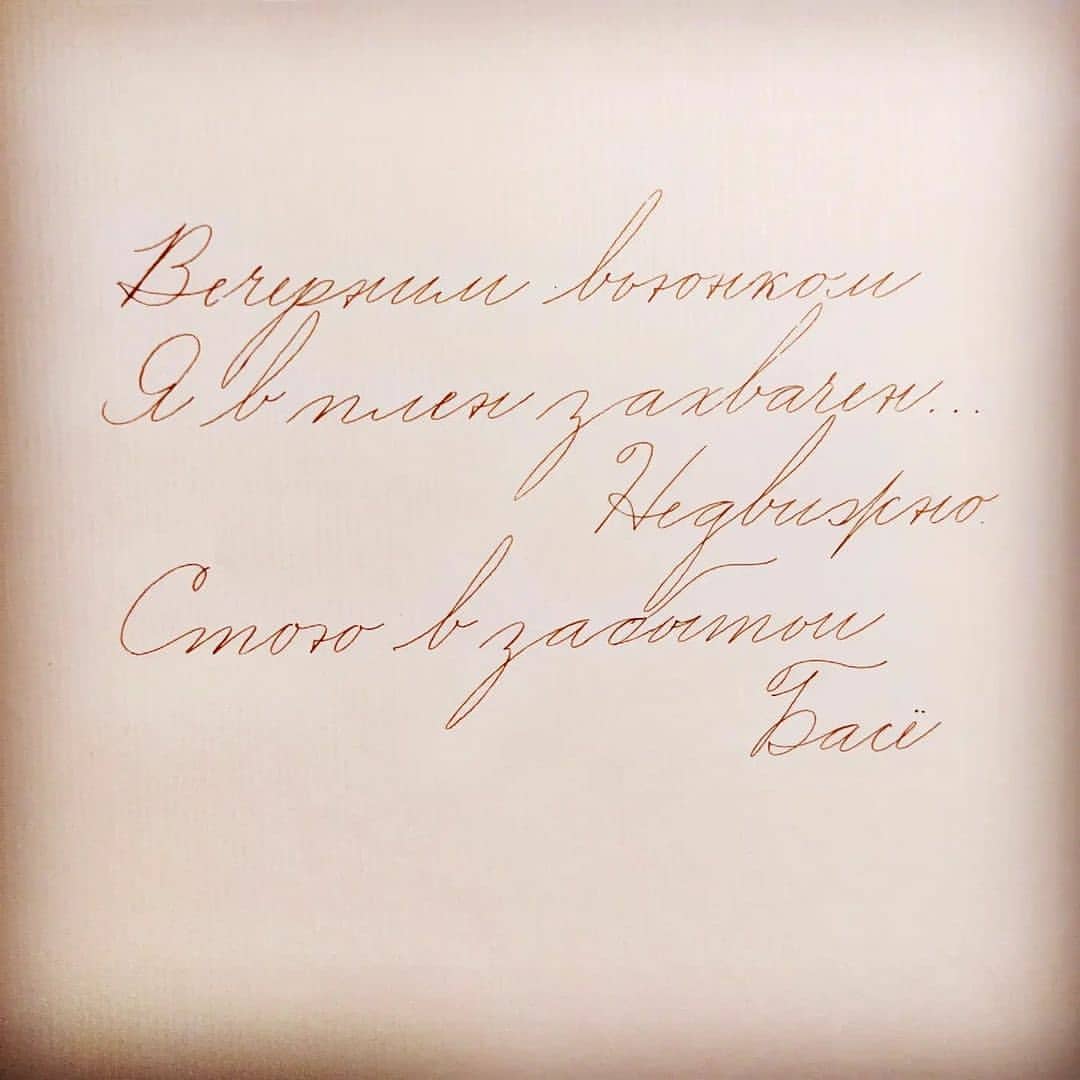 Вечерним вьюнком
Я в плен захвачен...
Недвижно
Стою в забытьи
Басё